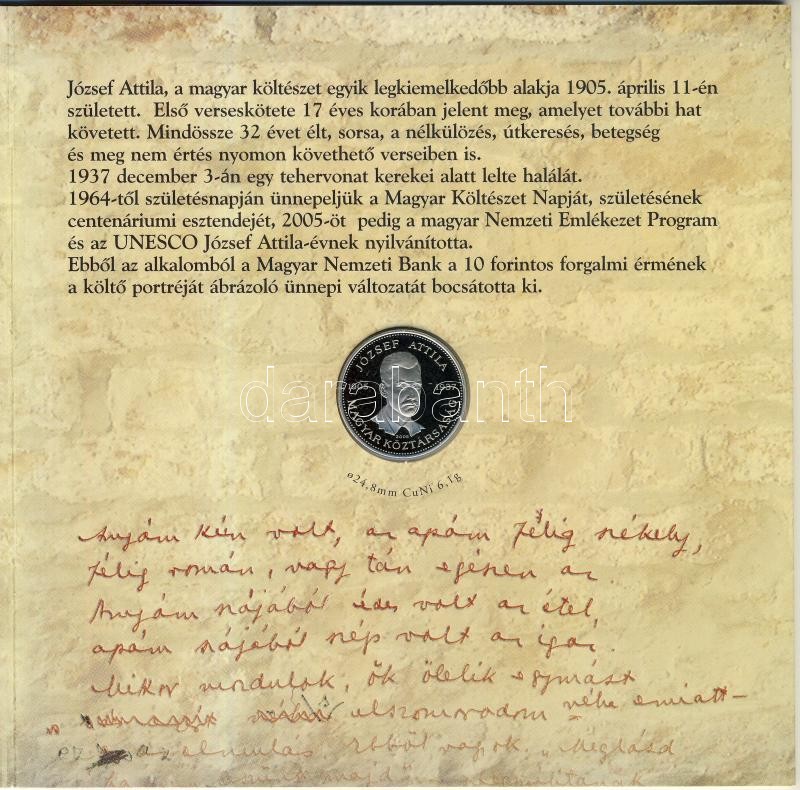 József Attila, a magyar költészet egyik legkiemelkedőbb alakja 1905. április 11-én
született. Első verseskötete 17 éves korában jelent meg, amelyet további hat
követett. Mindössze 32 évet élt, sorsa, a nélkülözés, útkeresés, betegség
és meg nem értés nyomon követhető verseiben is.
1937 december 3-án egy tehervonat kerekei alatt lelte halálát.
1964-től születésnapján ünnepeljük a Magyar Költészet Napját, születésének
centenáriumi esztendejét, 2005-öt pedig a magyar Nemzeti Emlékezet Program
és az UNESCO József Attila-évnek nyilvánította.
Ebből az alkalomból a Magyar Nemzeti Bank a 10 forintos forgalmi érmének
a költő portréját ábrázoló ünnepi változatát bocsátotta ki.
JÓZSEF ATTILA
1905 1937
darabanth
2005
MAGYAR KÖZTÁRSASÁG
ø24,8mm CuNi 6,1g
Anyám kún volt, az apám félig székely,
félig román, vagy tán egészen az.
Anyám szájából édes volt az étel,
apám szájából szép volt az igaz.
Mikor mozdulok, ők ölelik egymást
elszomorodom néha emiatt–
ez az elmulás. Ebből vagyok. „Meglásd
ha majd nem leszünk